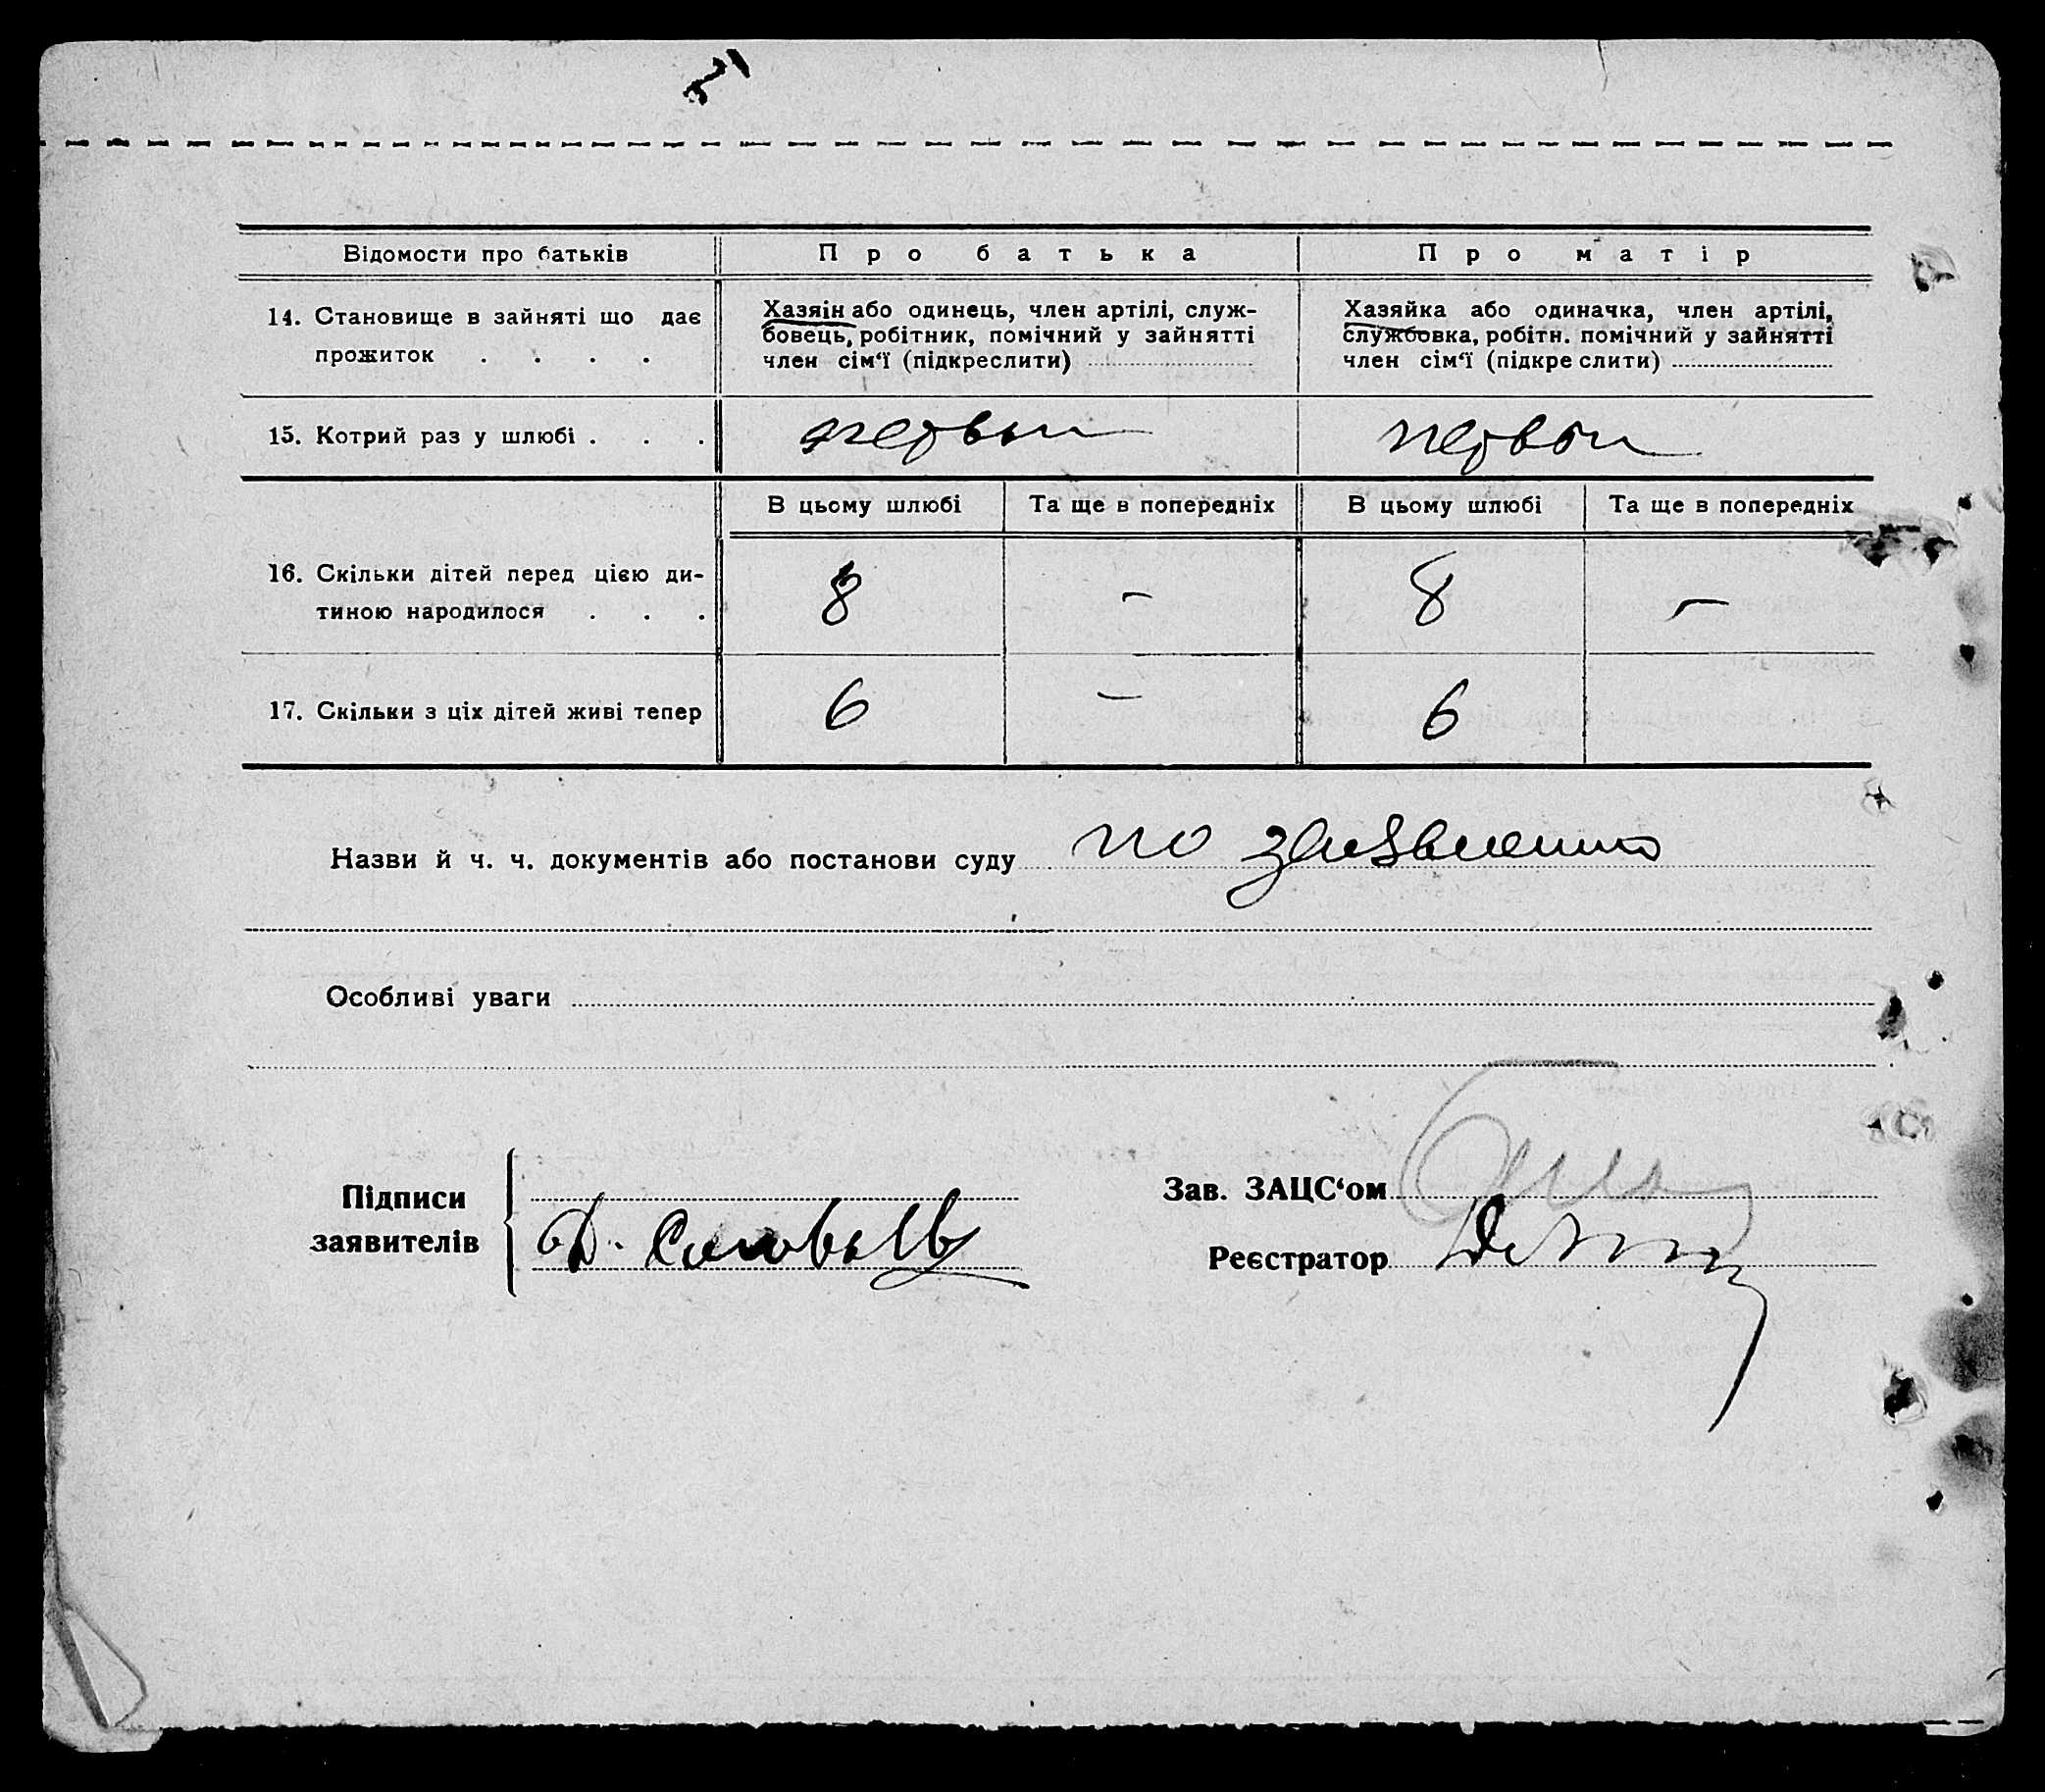 Відомости про батьків
Про батька
Про матір
14. Становище в зайняті що дає
прожиток . . . .
Хазяін або одинець, член артілі, служ-
бовець, робітник, помічний у зайнятті
член сім‘ї (підкреслити)
Хазяйка або одиначка, член артілі,
службовка, робітн. помічний у зайнятті
член сім‘ї (підкре слити)
15. Котрий раз у шлюбі . . .
первый
первой
В цьому шлюбі
Та ще в попередніх
В цьому шлюбі
Та ще в попередніх
16. Скільки дітей перед цією ди-
тиною народилося . . .
8 – 8 –
17. Скільки з ціх дітей живі тепер
6 – 6
Назви й ч. ч. документів або постанови суду по заявлению
Особливі уваги
Підписи
заявителів
Зав. ЗАЦС‘ом
Реєстратор